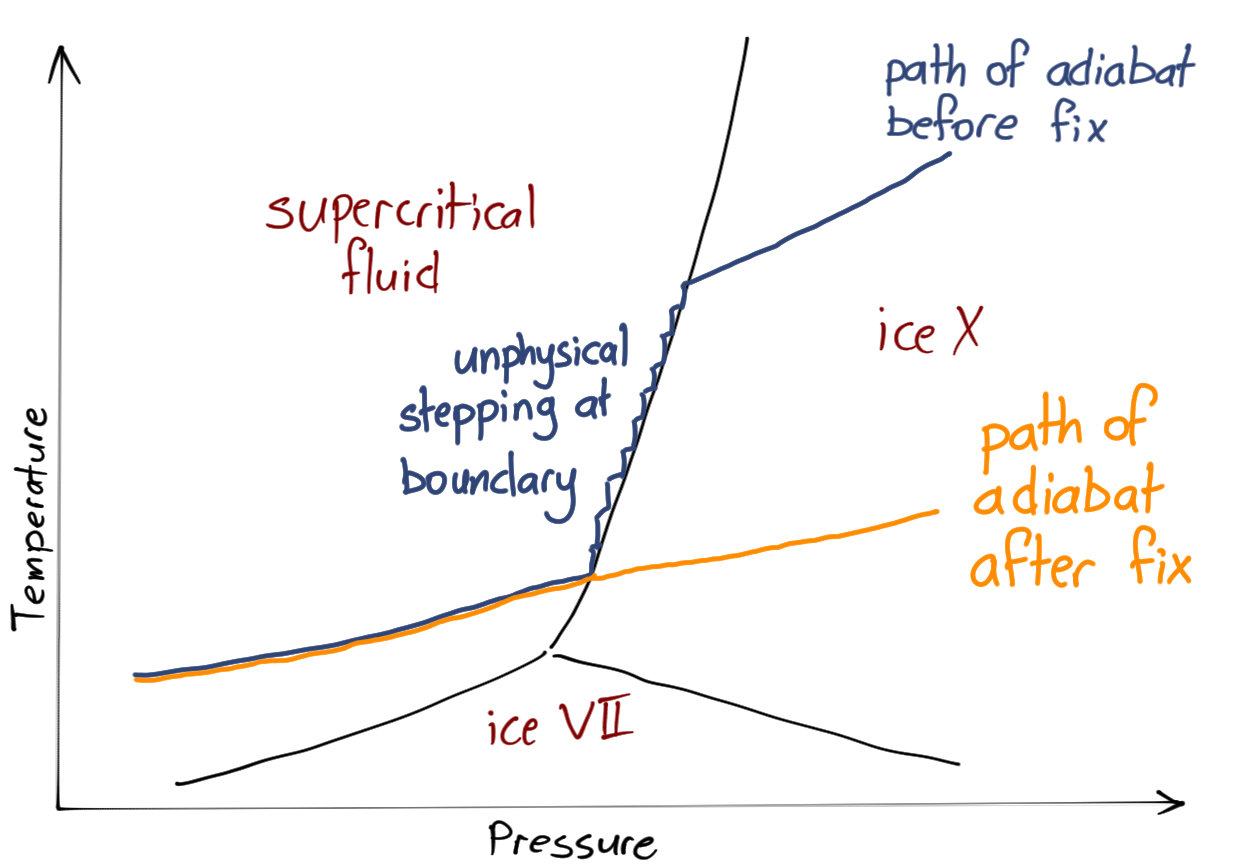 path of adiabat
before fix
supercritical
fluid
ice X
unphysical
stepping at
boundary
path of
adiabat
after fix
ice VII
Temperature
Pressure